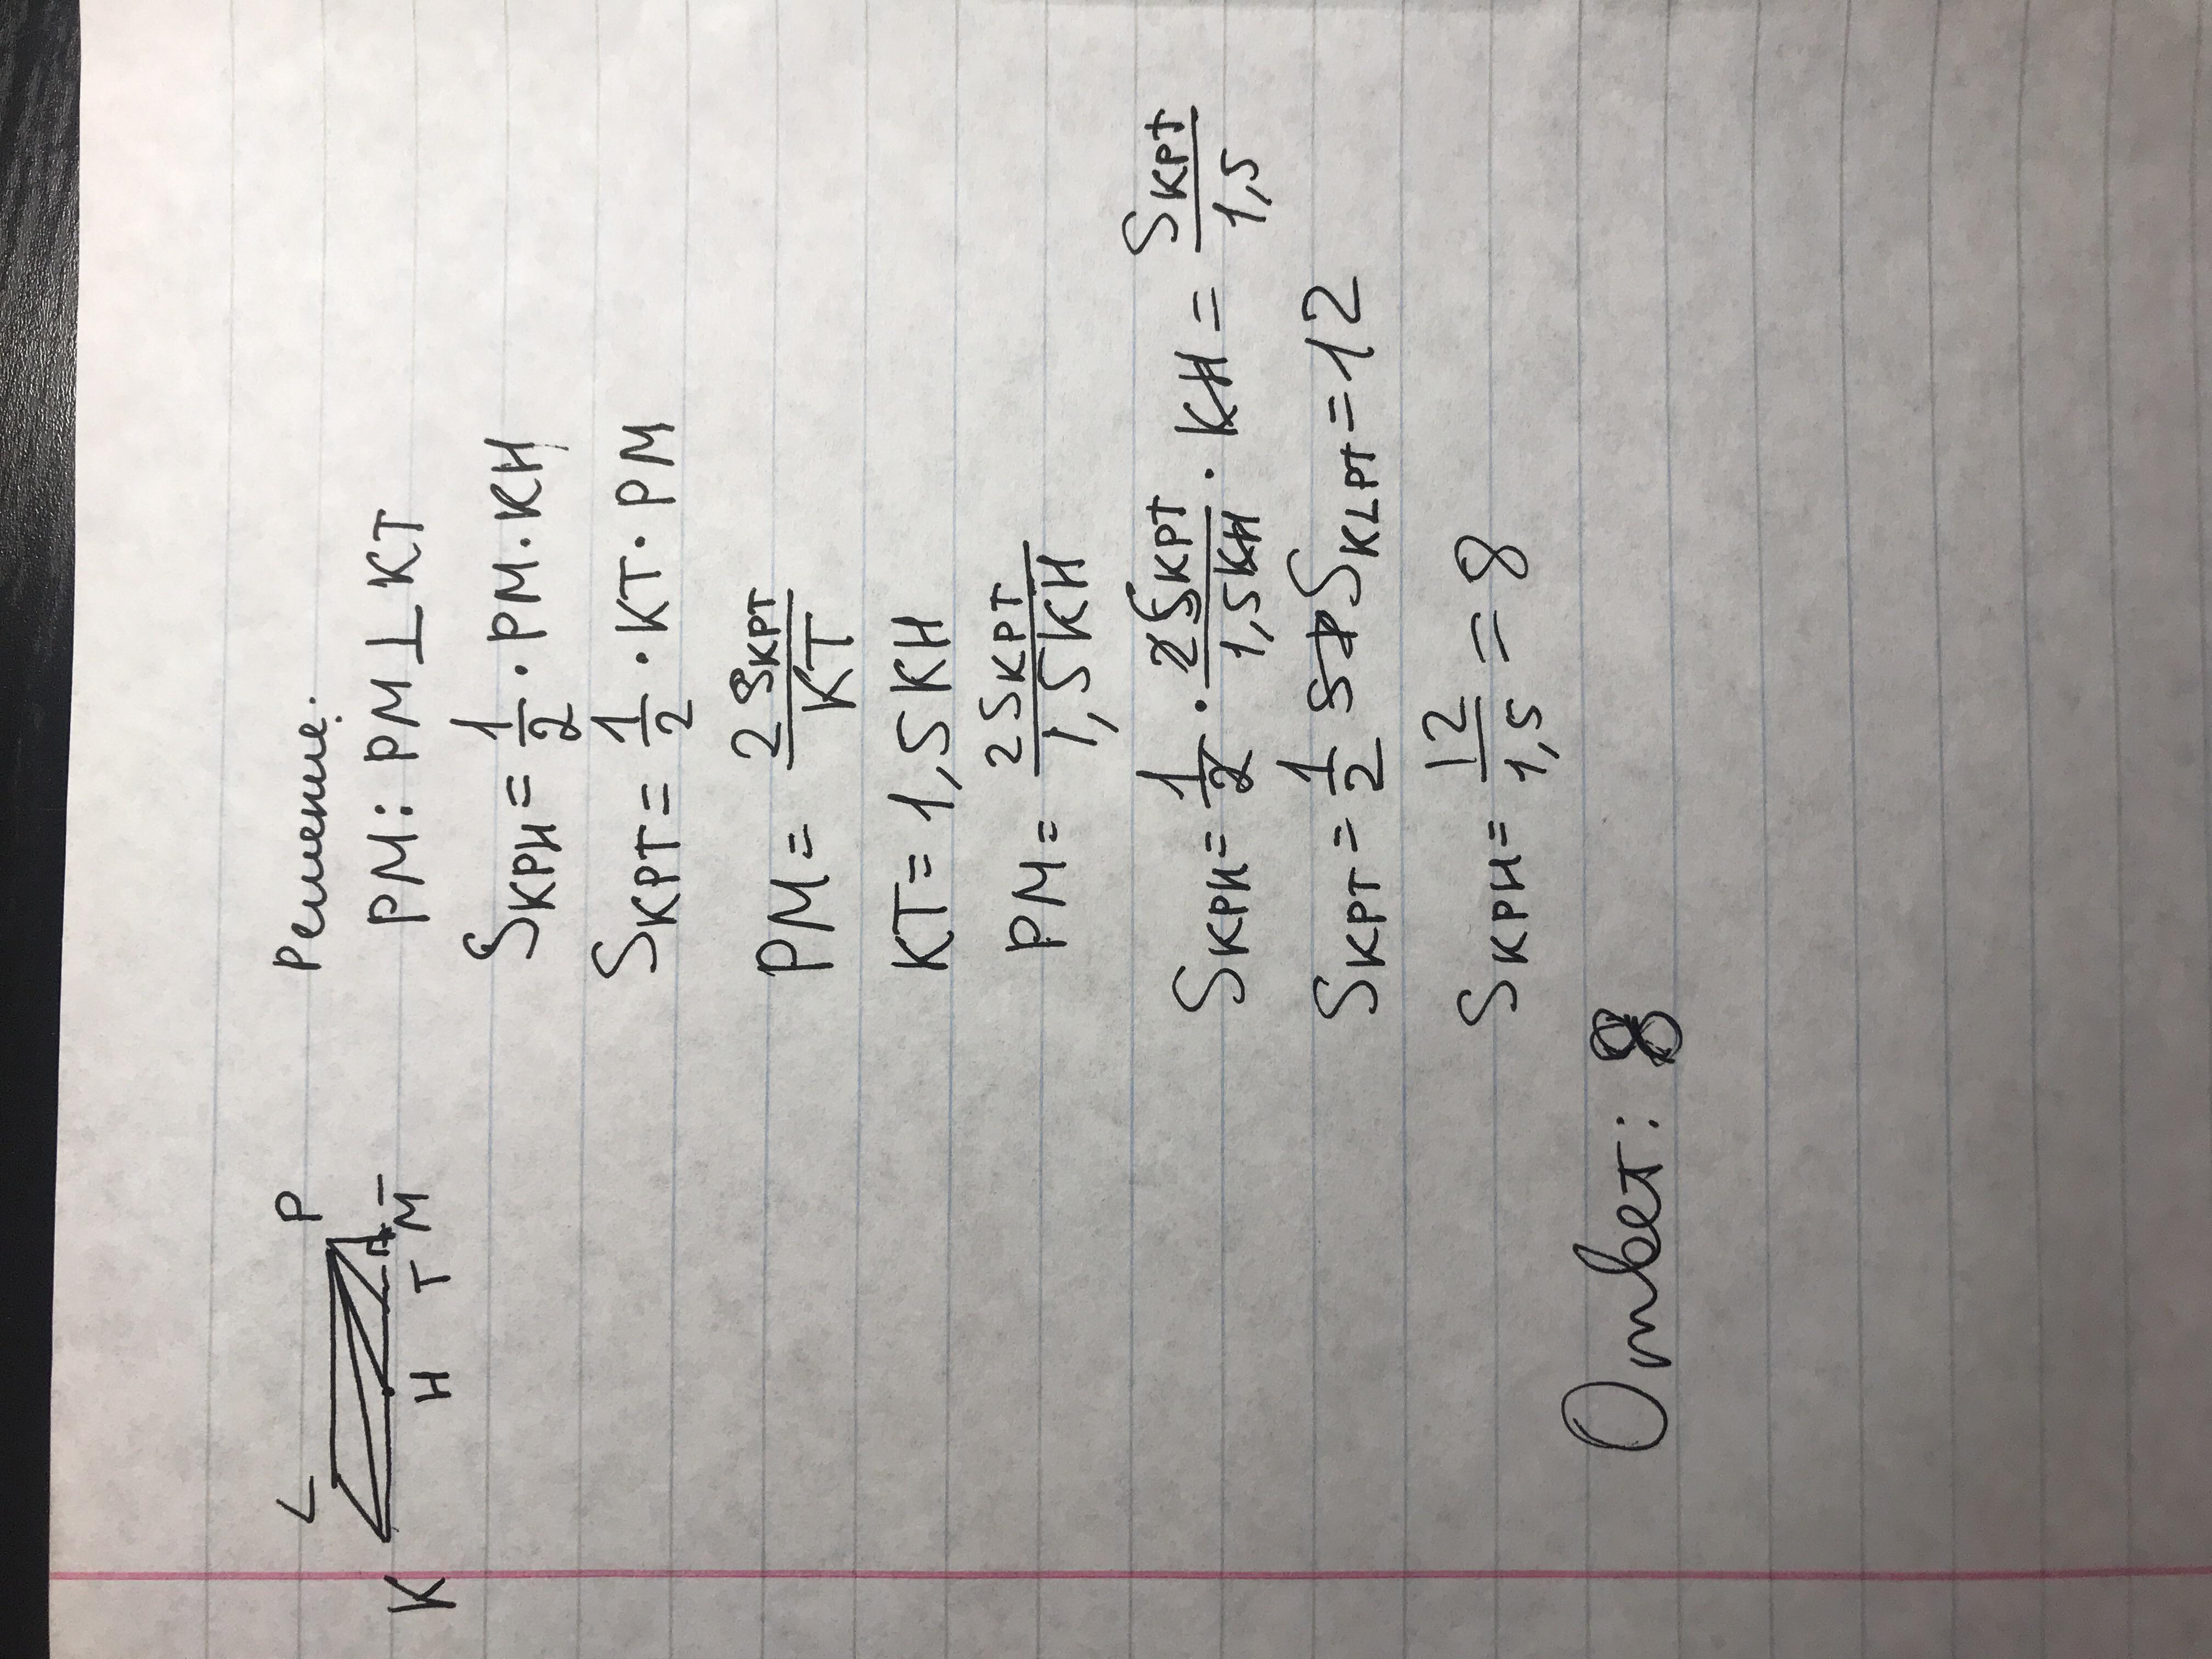 L P
K H T M
Решение:
PM: PM ⊥ KT
S_KPH = 1/2 · PM · KH
S_KPT = 1/2 · KT · PM
PM = 2S_KPT/KT
KT = 1,5 KH
PM = 2S_KPT/1,5KH
S_KPH = 1/2 · 2S_KPT/1,5KH · KH = S_KPT/1,5
S_KPT = 1/2 S_KLPT = 12
S_KPH = 12/1,5 = 8
Ответ: 8